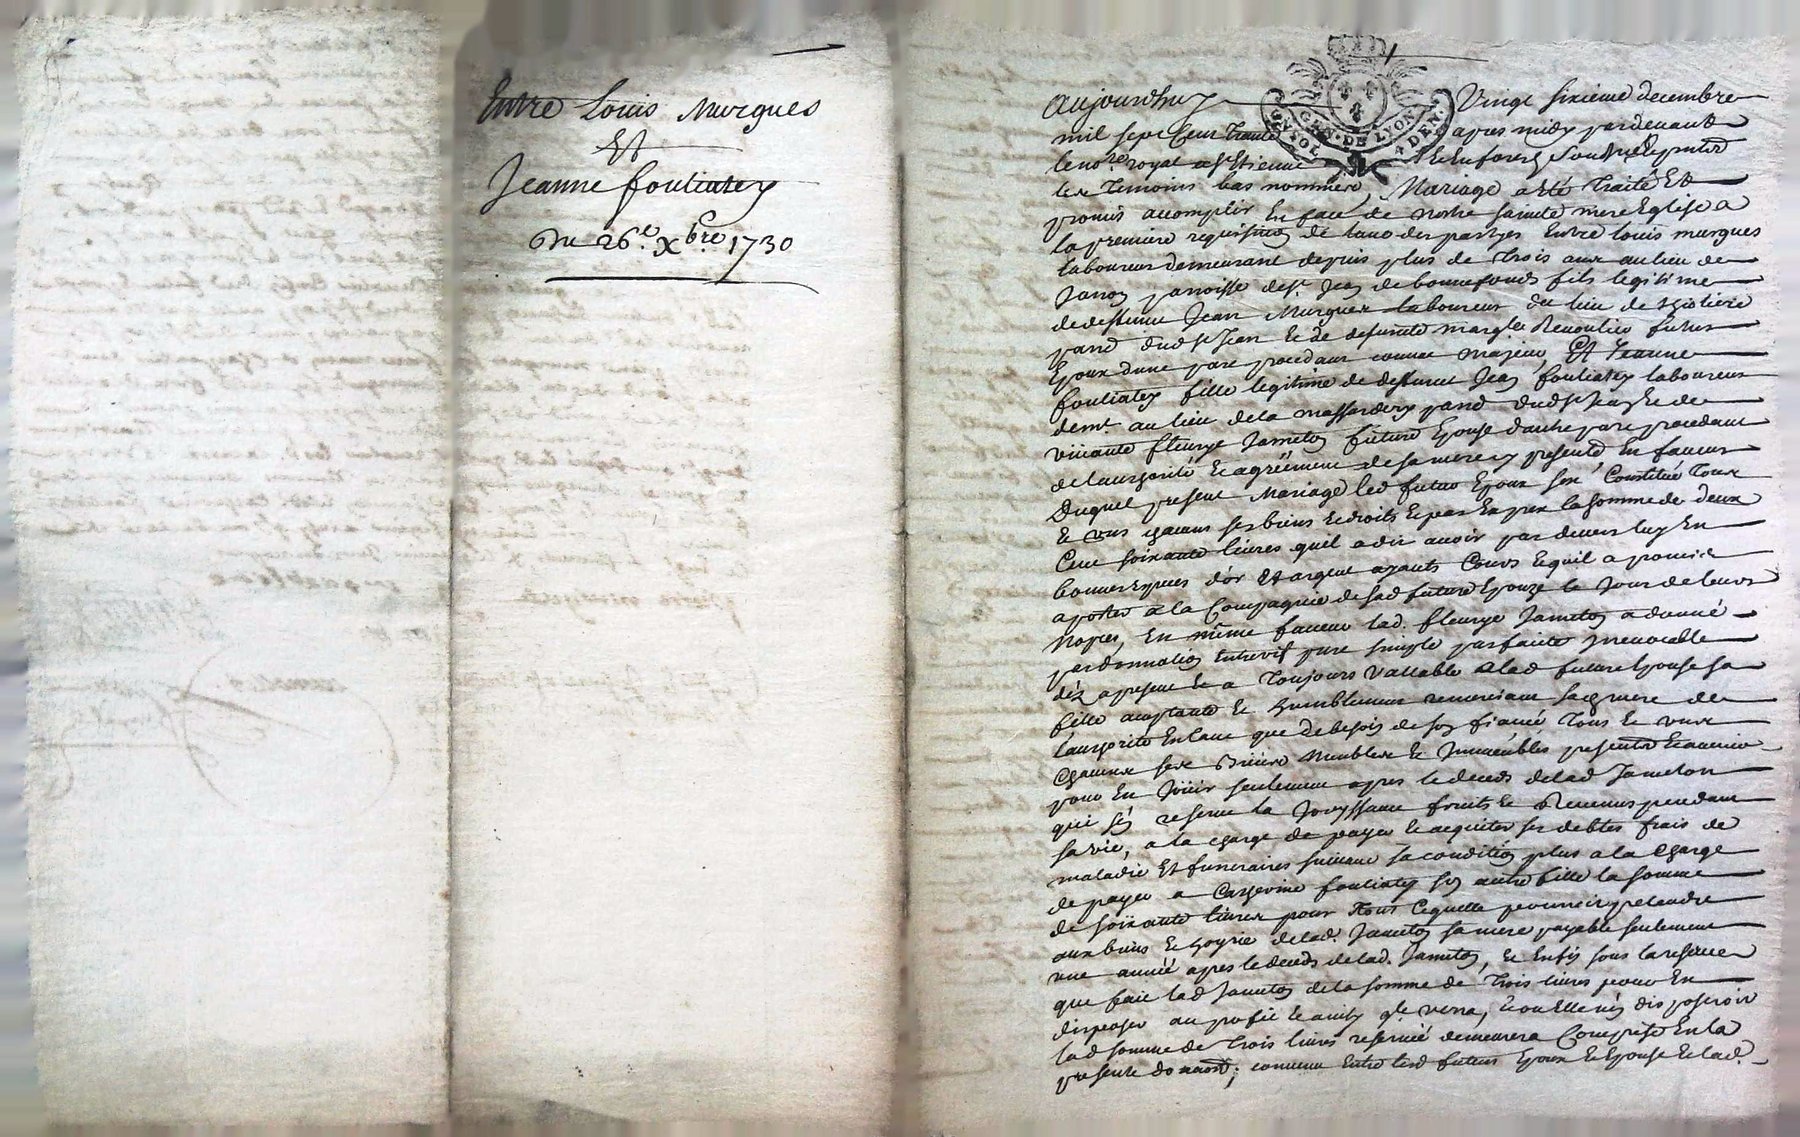 Entre Louis Murgues
Et
Jeanne fouliatey
Du 26.e Xbre 1730
GEN. DE LYON
UN SOL 4 DEN.
Aujourdhuy Vingt sixieme decembre
mil sept Cent Trante apres midy pardevant
le nore. royal a St Etienne En forez soubzsigné
les Temoins bas nommés, Mariage a eté Traité Et
promis accomplir En face de nostre sainte mere Eglise a
la premiere requisition de lune des partyes Entre Louis murgues
laboureur demeurant depuis plus de Trois ans au lieu de
Janon parroisse de st. Jean de bonnefonds fils legitime
de deffunt Jean Murgues laboureur du lieu de
parr. dud st Jean et de defunte margte. futur
Epoux dune part procedant comme majeur, Et Jeanne
fouliatey fille legitime de deffunt Jean fouliatey laboureur
demt. au lieu de la massardery parr. dud st Jean Et de
vivante fleurye Jameton future Epouse dautre part procedant
de lauthorité et agréément de sa mere y presente, En faveur
Duquel present Mariage led futur Epoux sest Constitué Tous
Et uns chacuns ses biens et droits et par Exprex la somme de deux
Cent soixante livres quil a dit avoir par devers luy En
bonnes especes d'or Et argent ayants Cours et quil a promis
aporter a la Compagnie de sad future Epouze le Jour de leurs
Nopces, En même faveur lad. fleurye Jameton a donné
par donnation Entrevif pure simple parfaite Irrevocable
dés a present et a Toujours Vallable a lad future Epouse sa
fille acceptante et humblement remerciant sad mere de
lauthorité En tant que de besoin de son fiancé Tous et uns
chacuns ses Biens Meubles et Immeubles presents et avenir
pour En Joüir seulement apres le deceds de lad Jameton
qui s'en reserve la Jouyssance fruits et Revenus pendant
sa vie, a la charge de payer et acquitter ses debtes frais de
maladie Et funeraires suivant sa condition plus a la Charge
de payer a Catherine fouliatey sa autre fille la somme
de soixante livres pour Tous Cequelle pourroit pretendre
aux biens et hoyrie de lad. Jameton sa mere payable seulement
une année apres le deceds de lad. Jameton, et Enfin sous la reserve
que fait lad Jameton de la somme de Trois livres pour En
disposer au profit de qui verra, et ou Elle n'en disposeroit
lad somme de Trois livres reservée demeurera Comprise En la
presente donaon; convenu Entre lesd futurs Epoux et Epouse et lad.